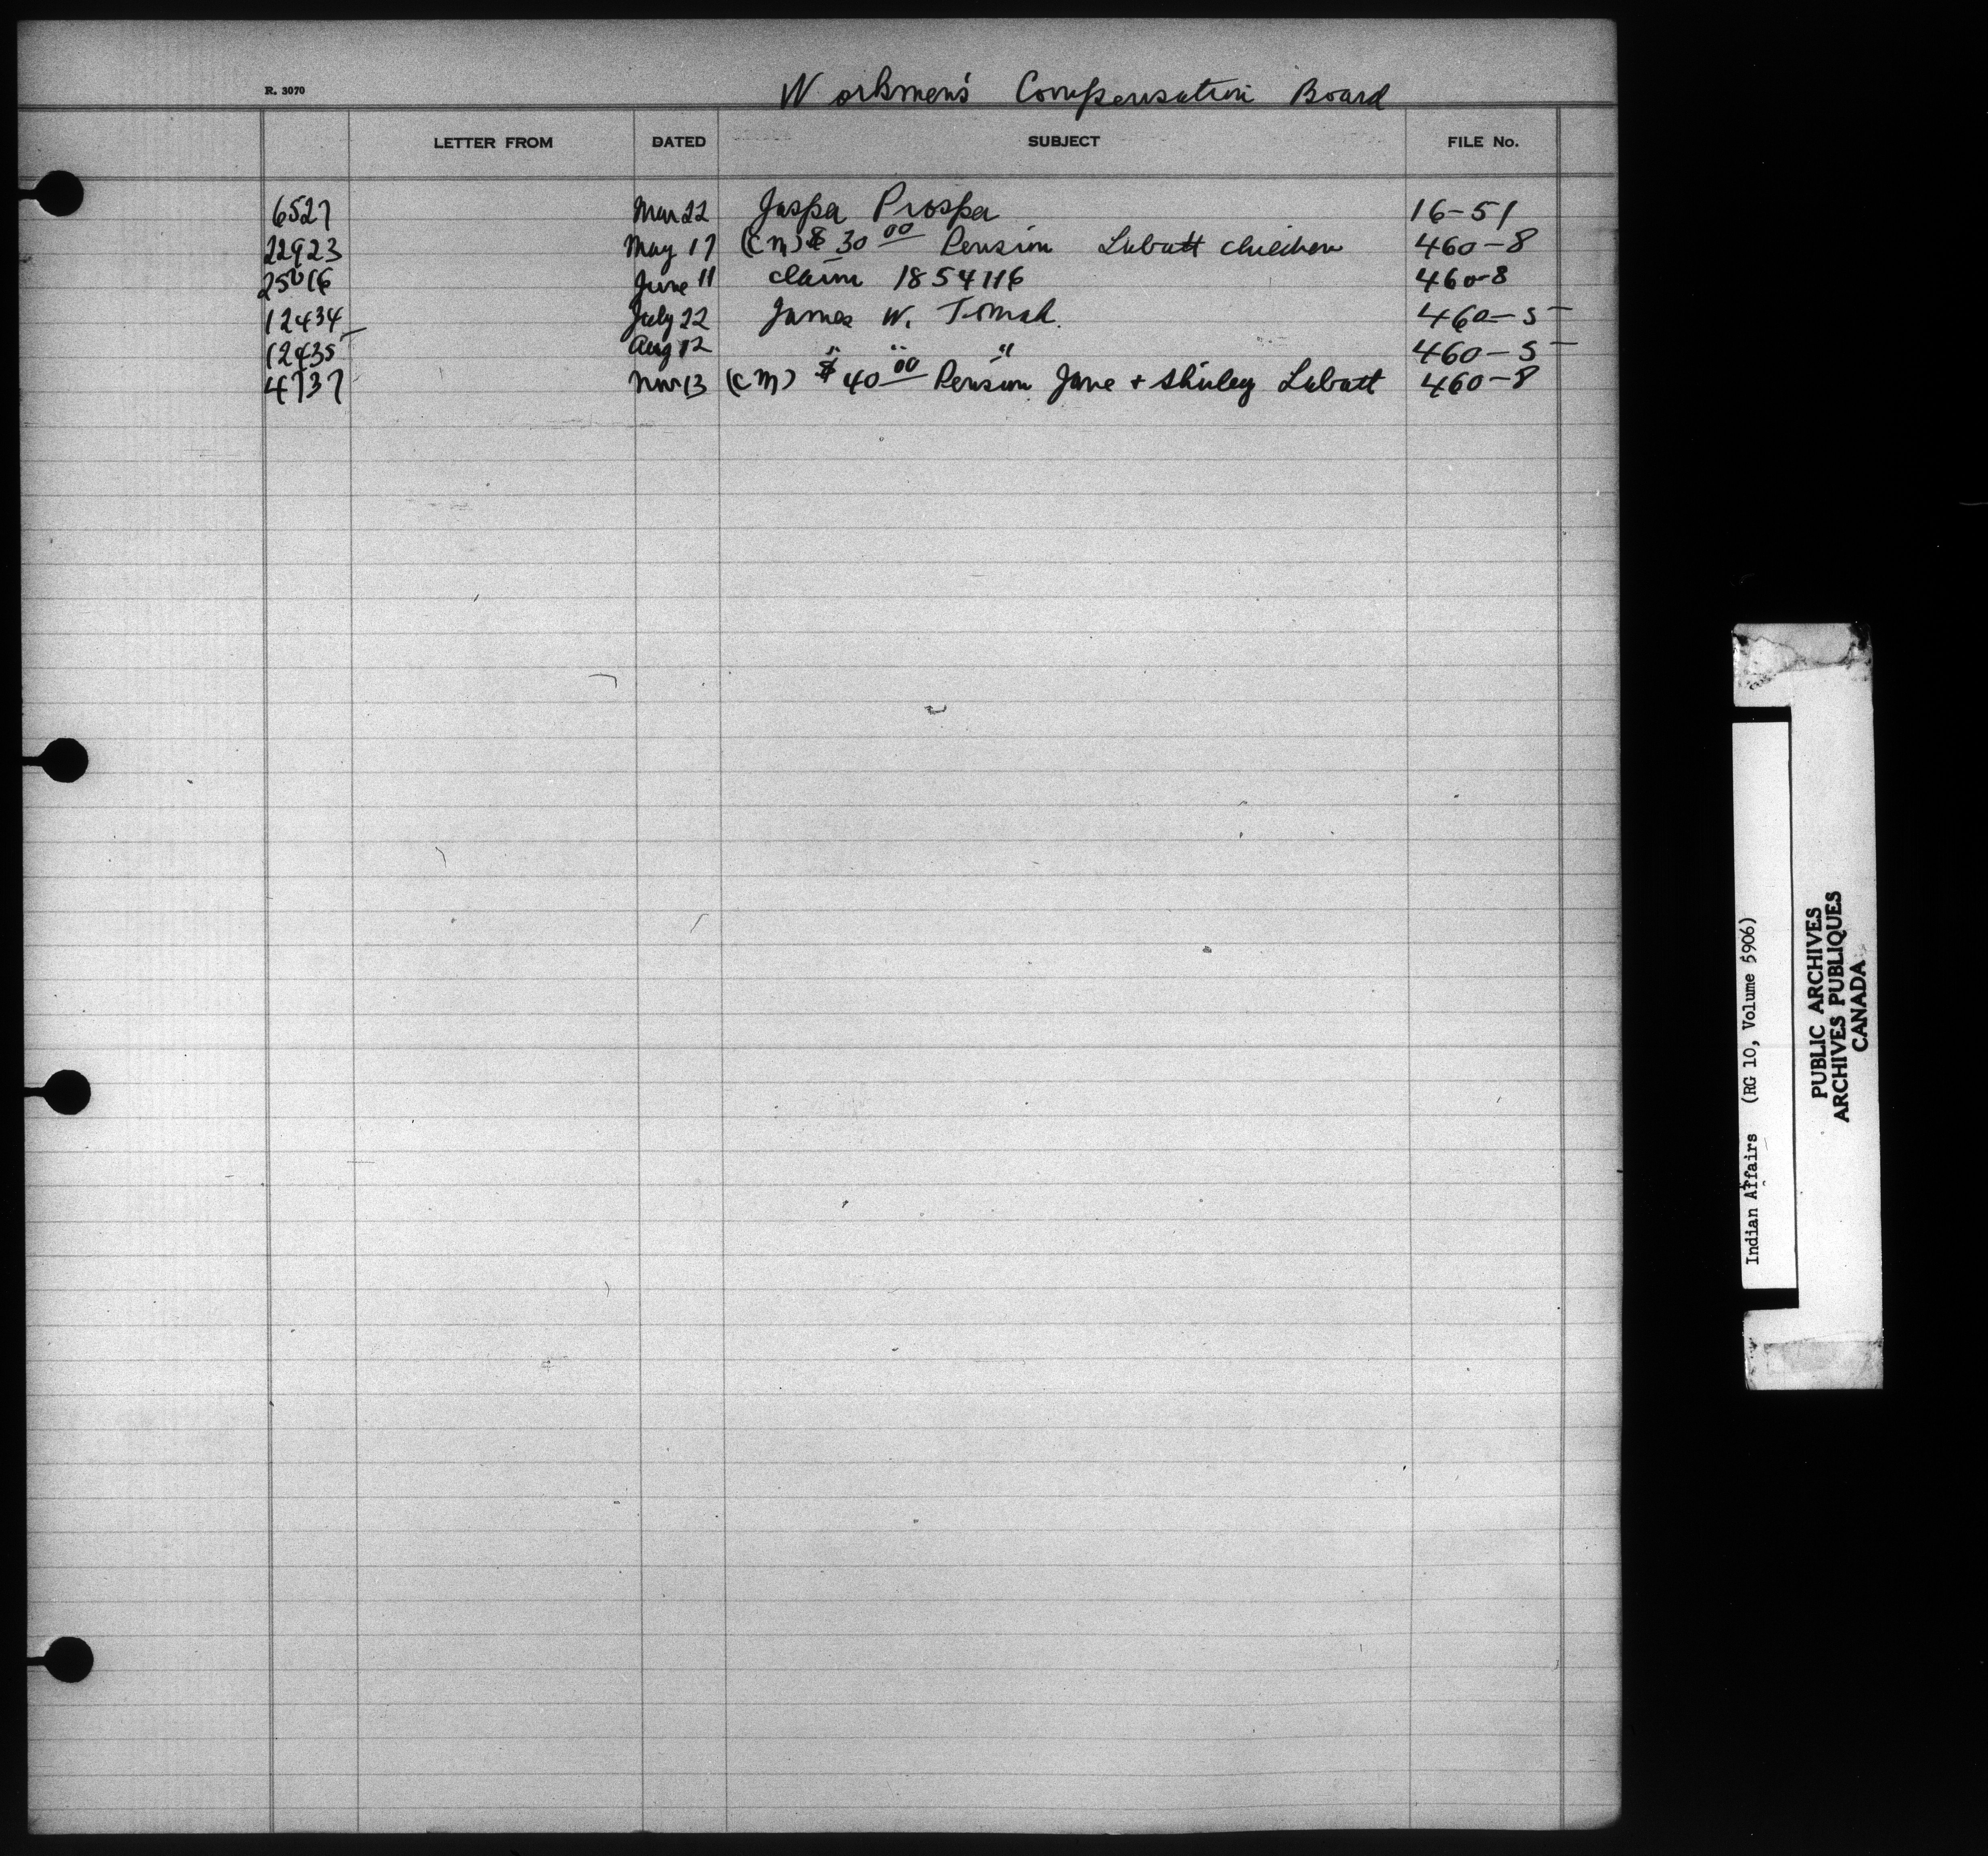 R. 3070
Workmen's Compensation Board
LETTER FROM DATED SUBJECT FILE No.
6527 Mar 22 Jasper Prosper 16-51
22923 May 17 (CM) $30 00 Pension Labatt children 460-8
25016 June 11 claim 1854116 460-8
12434 July 22 James W. Tomah 460-5
12435 Aug 12 " " " 460-5
4737 Nov 13 (CM) $40 00 Pension Jane + Shirley Labatt 460-8
Indian Affairs (RG 10, Volume 5906)
PUBLIC ARCHIVES
ARCHIVES PUBLIQUES
CANADA